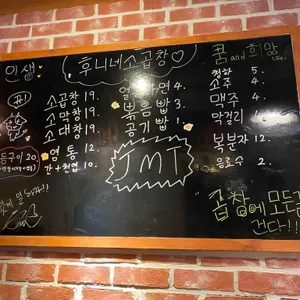 인생
후니네소곱창♡
꿈 and 희망
소곱창 19.
소막창 19.
소대창 19.
염통 12.
간+천엽 10.
모둠구이 20
면 4.
볶음빱 3.
공기빱 1.
JMT
청하 5.
소주 4.
맥주 4.
막걸리 4.
복분자 12.
음료수 2.
곱창에 모든걸
건다!!!